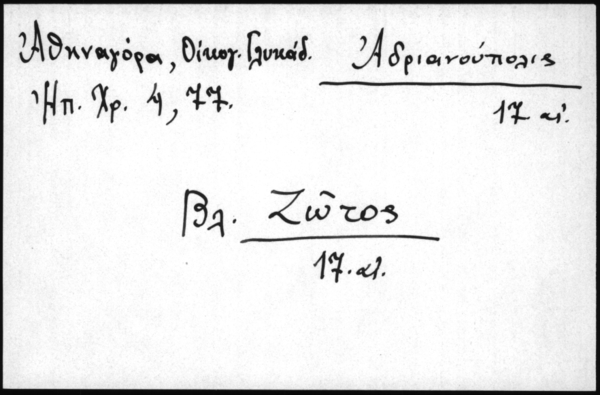 Ἀθηναγόρα, Οἰκογ. Γλυκάδ.
Ἠπ. Χρ. 4, 77.
Ἀδριανούπολις
17 αἰ.
Βλ. Ζῶτος
17. αἰ.